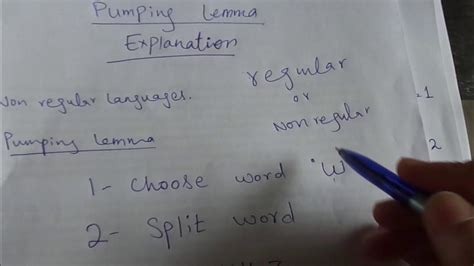 Pumping Lemma
Explanation
Non regular Languages.
regular
or
Non regular
=1
2
Pumping Lemma
1- Choose word "W
2- Split word